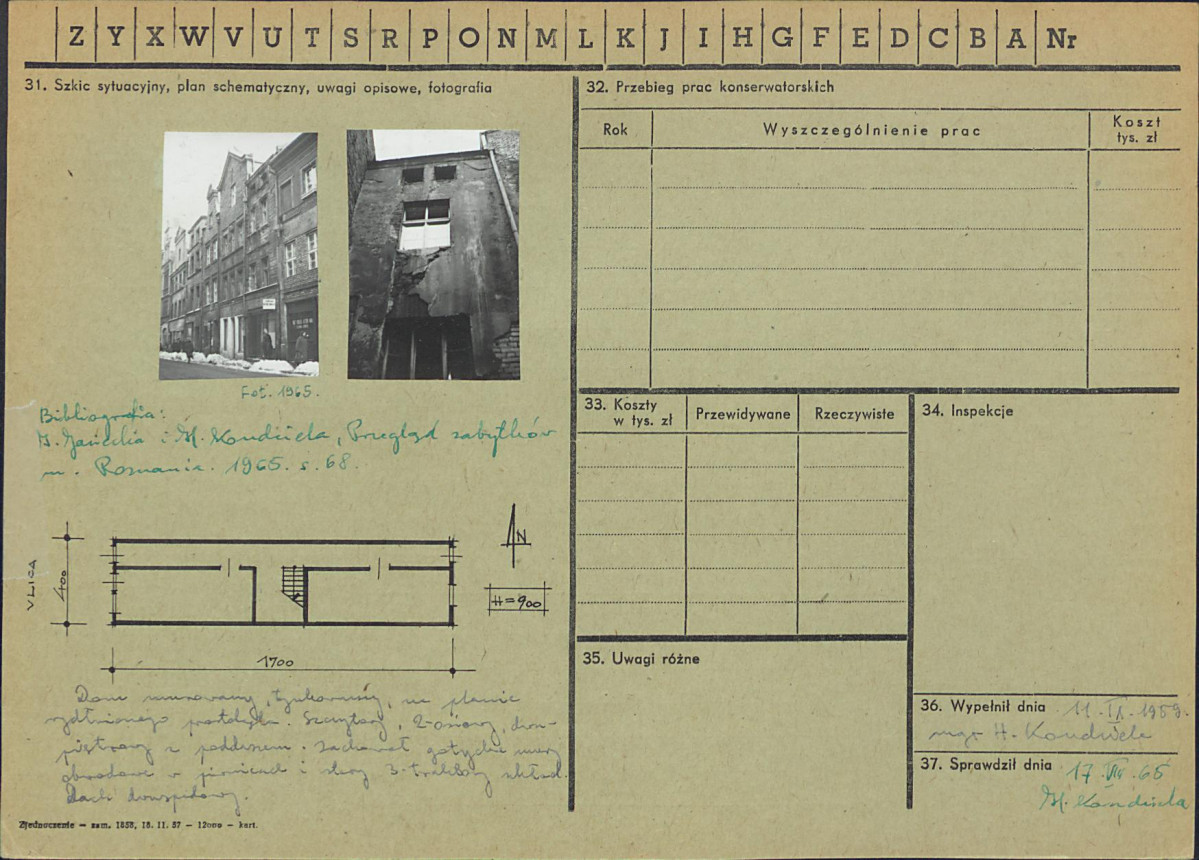 Z Y X W V U T S R P O N M L K J I H G F E D C B A Nr
31. Szkic sytuacyjny, plan schematyczny, uwagi opisowe, fotografia
Fot. 1965.
Bibliografia:
i H. Kondziela, Przegląd zabytków
m. Poznania. 1965. s. 68.
ULICA
400
N
H=900
1700
Dom murowany, tynkowany, na planie
wydłużonego prostokąta. Szczytowy, 2-osiowy, dwu-
piętrowy z poddaszem. Zachował gotyckie mury
obwodowe w piwnicach i 3-traktowy układ.
Dach dwuspadowy.
Zjednoczenie — zam. 1858, 18. 11. 57 — 12000 — kart.
32. Przebieg prac konserwatorskich
Rok
Wyszczególnienie prac
Koszt
tys. zł
33. Koszty
w tys. zł
Przewidywane
Rzeczywiste
34. Inspekcje
35. Uwagi różne
36. Wypełnił dnia 11.IX.1959.
mgr H. Kondziela
37. Sprawdził dnia 17. 65
H. Kondziela